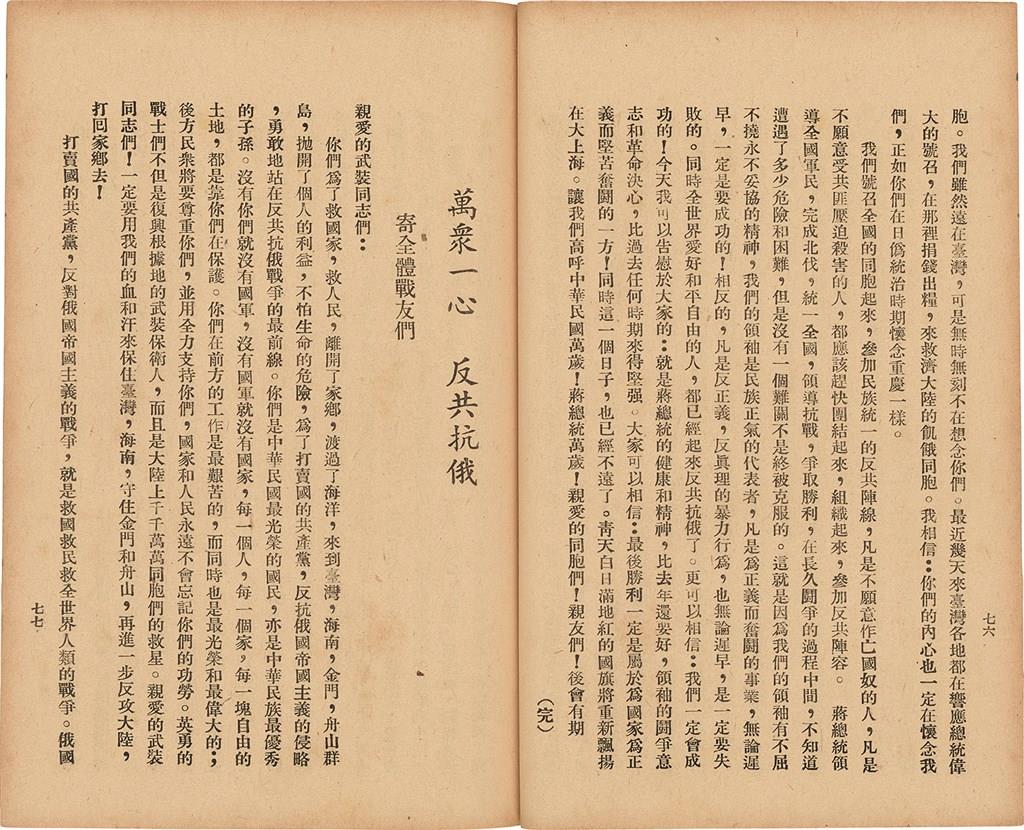 胞。我們雖然遠在臺灣，可是無時無刻不在想念你們。最近幾天來臺灣各地都在響應總統偉
大的號召，在那裡捐錢出糧，來救濟大陸的飢俄同胞。我相信：你們的內心也一定在懷念我
們，正如你們在日僞統治時期懷念重慶一樣。
我們號召全國的同胞起來，參加民族統一的反共陣線，凡是不願意作亡國奴的人，凡是
不願意受共匪壓迫殺害的人，都應該趕快團結起來，組織起來，參加反共陣容。　蔣總統領
導全國軍民，完成北伐，統一全國，領導抗戰，爭取勝利，在長久鬪爭的過程中間，不知道
遭遇了多少危險和困難，但是沒有一個難關不是終被克服的。這就是因爲我們的領袖有不屈
不撓永不妥協的精神，我們的領袖是民族正氣的代表者，凡是爲正義而奮鬪的事業，無論遲
早，一定是要成功的！相反的，凡是反正義，反眞理的暴力行爲，也無論遲早，是一定要失
敗的。同時全世界愛好和平自由的人，都已經起來反共抗俄了。更可以相信：我們一定會成
功的！今天我可以告慰於大家的：就是蔣總統的健康和精神，比去年還要好，領袖的鬪爭意
志和革命決心，比過去任何時期來得堅强。大家可以相信：最後勝利一定是屬於爲國家爲正
義而堅苦奮鬪的一方！同時這一個日子，也已經不遠了。靑天白日滿地紅的國旗將重新飄揚
在大上海。讓我們高呼中華民國萬歲！蔣總統萬歲！親愛的同胞們！親友們！後會有期
（完）
七六
萬衆一心　反共抗俄
寄全體戰友們
親愛的武裝同志們：
你們爲了救國家，救人民，離開了家鄉，渡過了海洋，來到臺灣，海南，金門，舟山群
島，拋開了個人的利益，不怕生命的危險，爲了打賣國的共產黨，反抗俄國帝國主義的侵略
，勇敢地站在反共抗俄戰爭的最前線。你們是中華民國最光榮的國民，亦是中華民族最優秀
的子孫。沒有你們就沒有國軍，沒有國軍就沒有國家，每一個人，每一個家，每一塊自由的
土地，都是靠你們在保護。你們在前方的工作是最艱苦的，而同時也是最光榮和最偉大的；
後方民衆將要尊重你們，並用全力支持你們，國家和人民永遠不會忘記你們的功勞。英勇的
戰士們不但是復興根據地的武裝保衛人，而且是大陸上千千萬萬同胞們的救星。親愛的武裝
同志們！一定要用我們的血和汗來保住臺灣，海南，守住金門和舟山，再進一步反攻大陸，
打回家鄉去！
打賣國的共產黨，反對俄國帝國主義的戰爭，就是救國救民救全世界人類的戰爭。俄國
七七